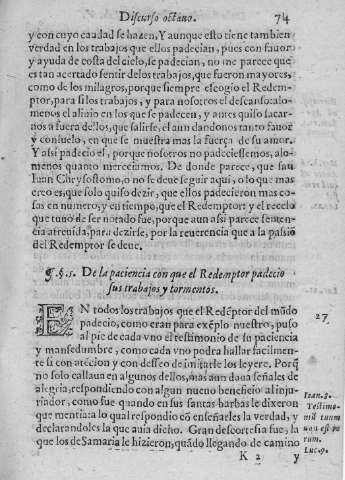 Discurso octauo. 74
y con cuyo caudal se hazen, Y aunque esto tiene tambien
verdad en los trabajos que ellos padecian, pues con fauor
y ayuda de costa del cielo, se padecian, no me parece que
es tan acertado sentir delos trabajos, que fueron mayores,
como de los milagros, porque siempre escogio el Redem-
ptor, para si los trabajos, y para nosotros el descanso: alo-
menos el aliuio en los que se padecen, y antes quiso sacar-
nos a fuera dellos, que salirse, el aun dandonos tanto fauor
y consuelo, en que se muestra mas la fuerça de su amor.
Y assi padecio el, porque nosotros no padeciessemos, alo-
menos quanto mereciamos. De donde parece, que san
Iuan Chrysostomo, a no se deue seguir aqui, o lo que mas
creo es, que solo quiso dezir, que ellos padecieron mas co-
sas en numero, y en tiempo, que el Redemptor: y el recelo
que tuuo de ser notado fue, porque aun assi parece senten-
cia atreuida, para dezirse, por la reuerencia que a la passiõ
del Redemptor se deue.
§. 5. De la paciencia con que el Redemptor padecio
sus trabajos y tormentos.
EN todos los trabajos que el Redẽptor del mũdo
padecio, como eran para exẽplo nuestro, puso
al pie de cada vno el testimonio de su paciencia
y mansedumbre, como cada vno podra hallar facilmen-
te si con atẽcion y con desseo de imitarle los leyere. Porq̃
no solo callaua en algunos dellos, mas aun daua señales de
alegria, respondiendo con algun nueuo beneficio al inju-
riador, como fue quando en sus santas barbas le dixeron
que mentia: a lo qual respondio cõ enseñarles la verdad, y
declarandoles la que auia dicho. Gran descortesia fue, la
que los de Samaria le hizieron, quãdo llegando de camino
K 2 y
27
Ioan. 8.
Testimo-
nium tuum
non est ve
rum.
Luc. 9.